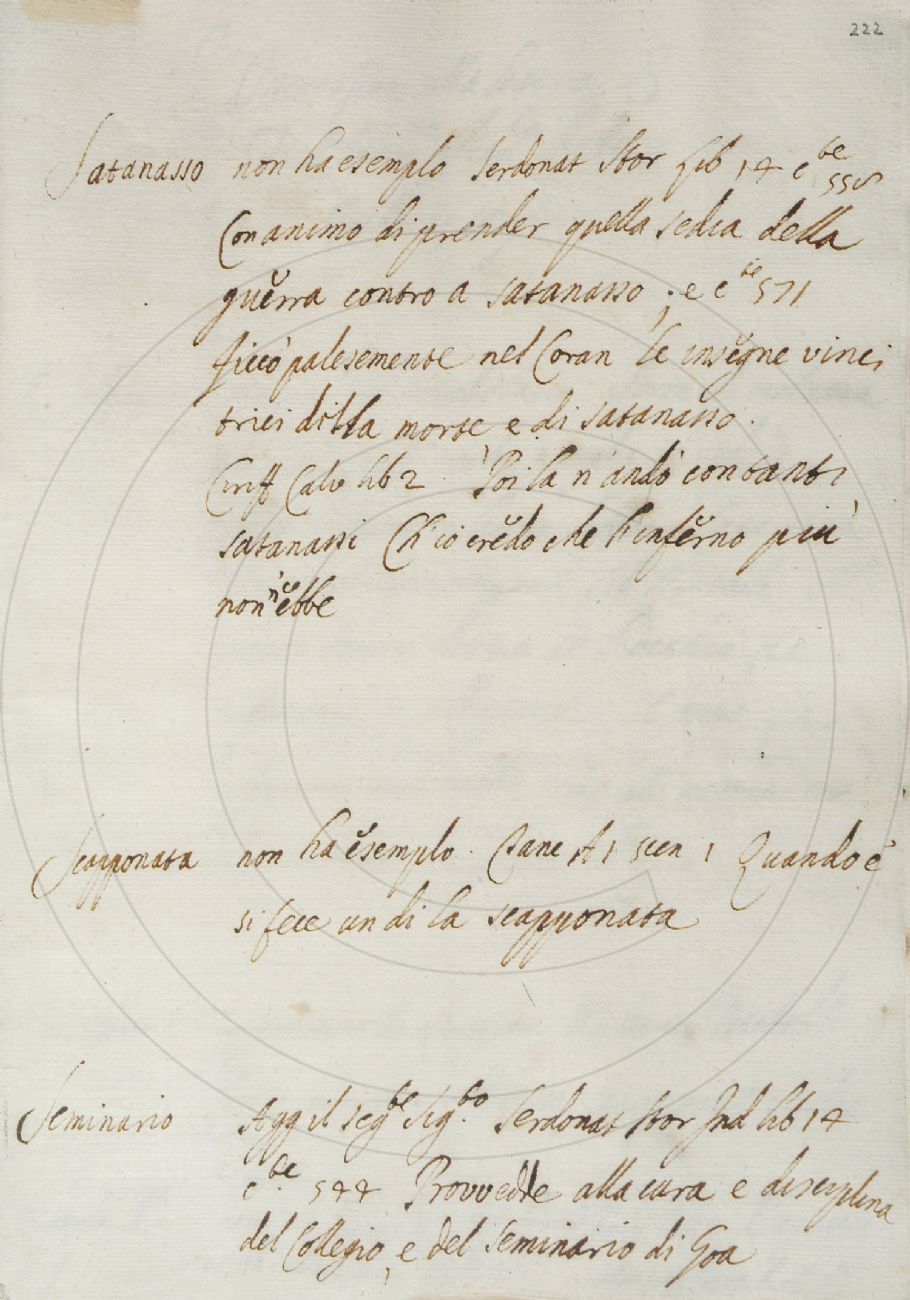 222
Satanasso non ha esemplo Serdonat Stor lib 14 c^te 558
Con animo di prender quella sedia della
guerra contro a satanasso ; e c^te 571
ficcò palesemente nel Coran le insegne vinci
trici della morte, e di satanasso.
Ciriff Calv lib 2 Poi la n'andò con tanti
satanassi Ch'io credo che l'inferno più
non n'ebbe
Scapponata non ha esemplo. At 1 scen 1 Quando e'
si fece un dì la scapponata
Seminario Agg il seg^te Sig^to Serdonat stor Ind lib 14
c^te 544 Provvedde alla cura e disciplina
del Collegio, e del Seminario di Goa